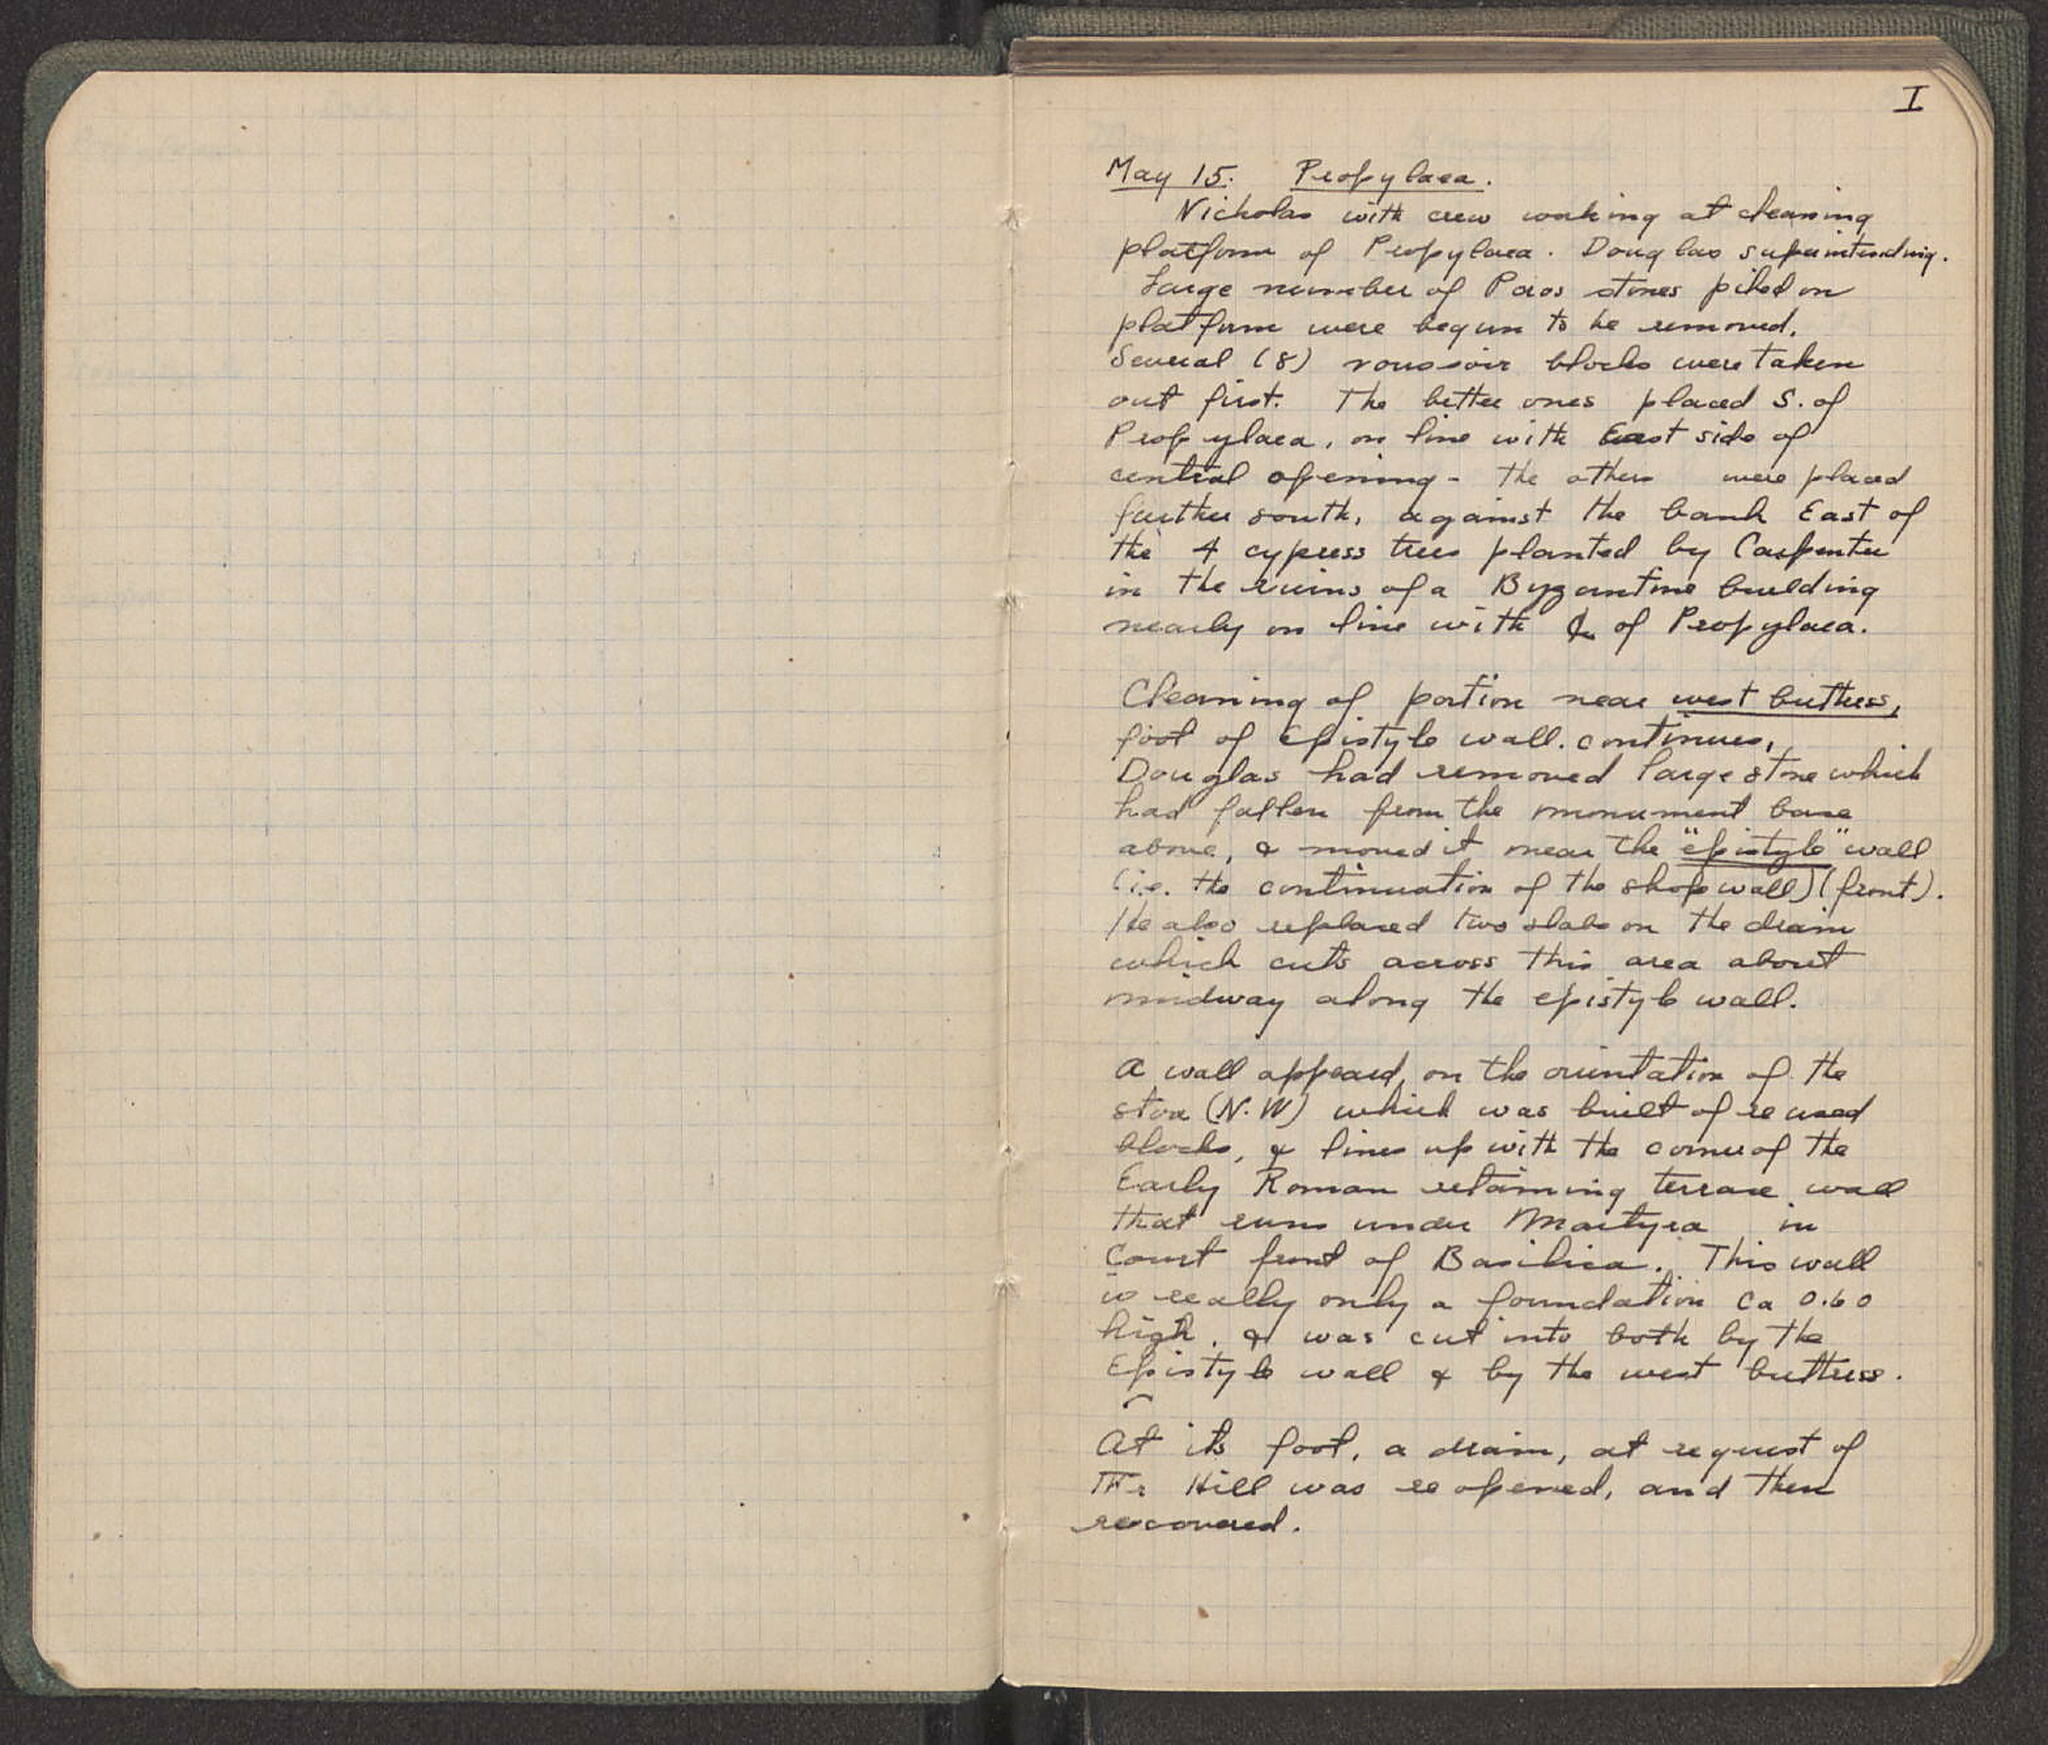 I
May 15. Propylaea.
Nicholas with crew working at cleaning
platform of Propylaea. Douglas superintending.
Large number of Poros stones piled on
platform were begun to be removed.
Several (8) voussoir blocks were taken
out first. The better ones placed S. of
Propylaea, on line with East side of
central opening - the others were placed
further south, against the bank East of
the 4 cypress trees planted by Carpenter
in the ruins of a Byzantine building
nearly on line with ℄ of Propylaea.
Cleaning of portion near west buttress,
foot of Epistyle wall. continues,
Douglas had removed large stone which
had fallen from the monument base
above, & moved it near the "epistyle" wall
(i.e. the continuation of the shop wall) (front).
He also replaced two slabs on the drain
which cuts across this area about
midway along the epistyle wall.
A wall appeard, on the orientation of the
stoa (N.W) which was built of re used
blocks, & lines up with the corner of the
Early Roman retaining terrace wall
that runs under Martyra in
Court front of Basilica. This wall
is really only a foundation ca 0.60
high, & was cut into both by the
Epistyle wall & by the west buttress.
At its foot, a drain, at request of
Mr Hill was re opened, and then
recovered.